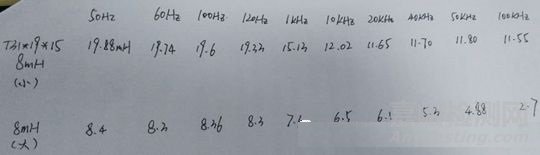 50Hz 60Hz 100Hz 120Hz 1kHz 10kHz 20kHz 40kHz 50kHz 100kHz
T31*19*15 19.88mH 19.74 19.6 19.33 15.13 12.02 11.65 11.70 11.80 11.55
8mH
(小)
8mH 8.4 8.3 8.36 8.3 6.5 6.1 5.3 4.88 2.7
(大)